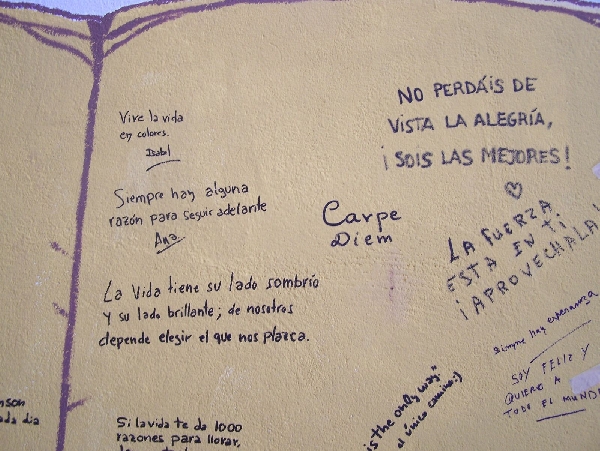 Vive la vida
en colores.
Isabel
Siempre hay alguna
razón para seguir adelante
Ana
La vida tiene su lado sombrío
y su lado brillante; de nosotros
depende elegir el que nos plazca.
Si la vida te da 1000
razones para llorar,
ada dia
Carpe
Diem
NO PERDÁIS DE
VISTA LA ALEGRÍA,
¡SOIS LAS MEJORES!
LA FUERZA
ESTA EN TI
¡APROVECHALA!
siempre hay esperanza
SOY FELIZ Y
QUIERO A
TODO EL MUNDO
is the only way."
el único camino:)